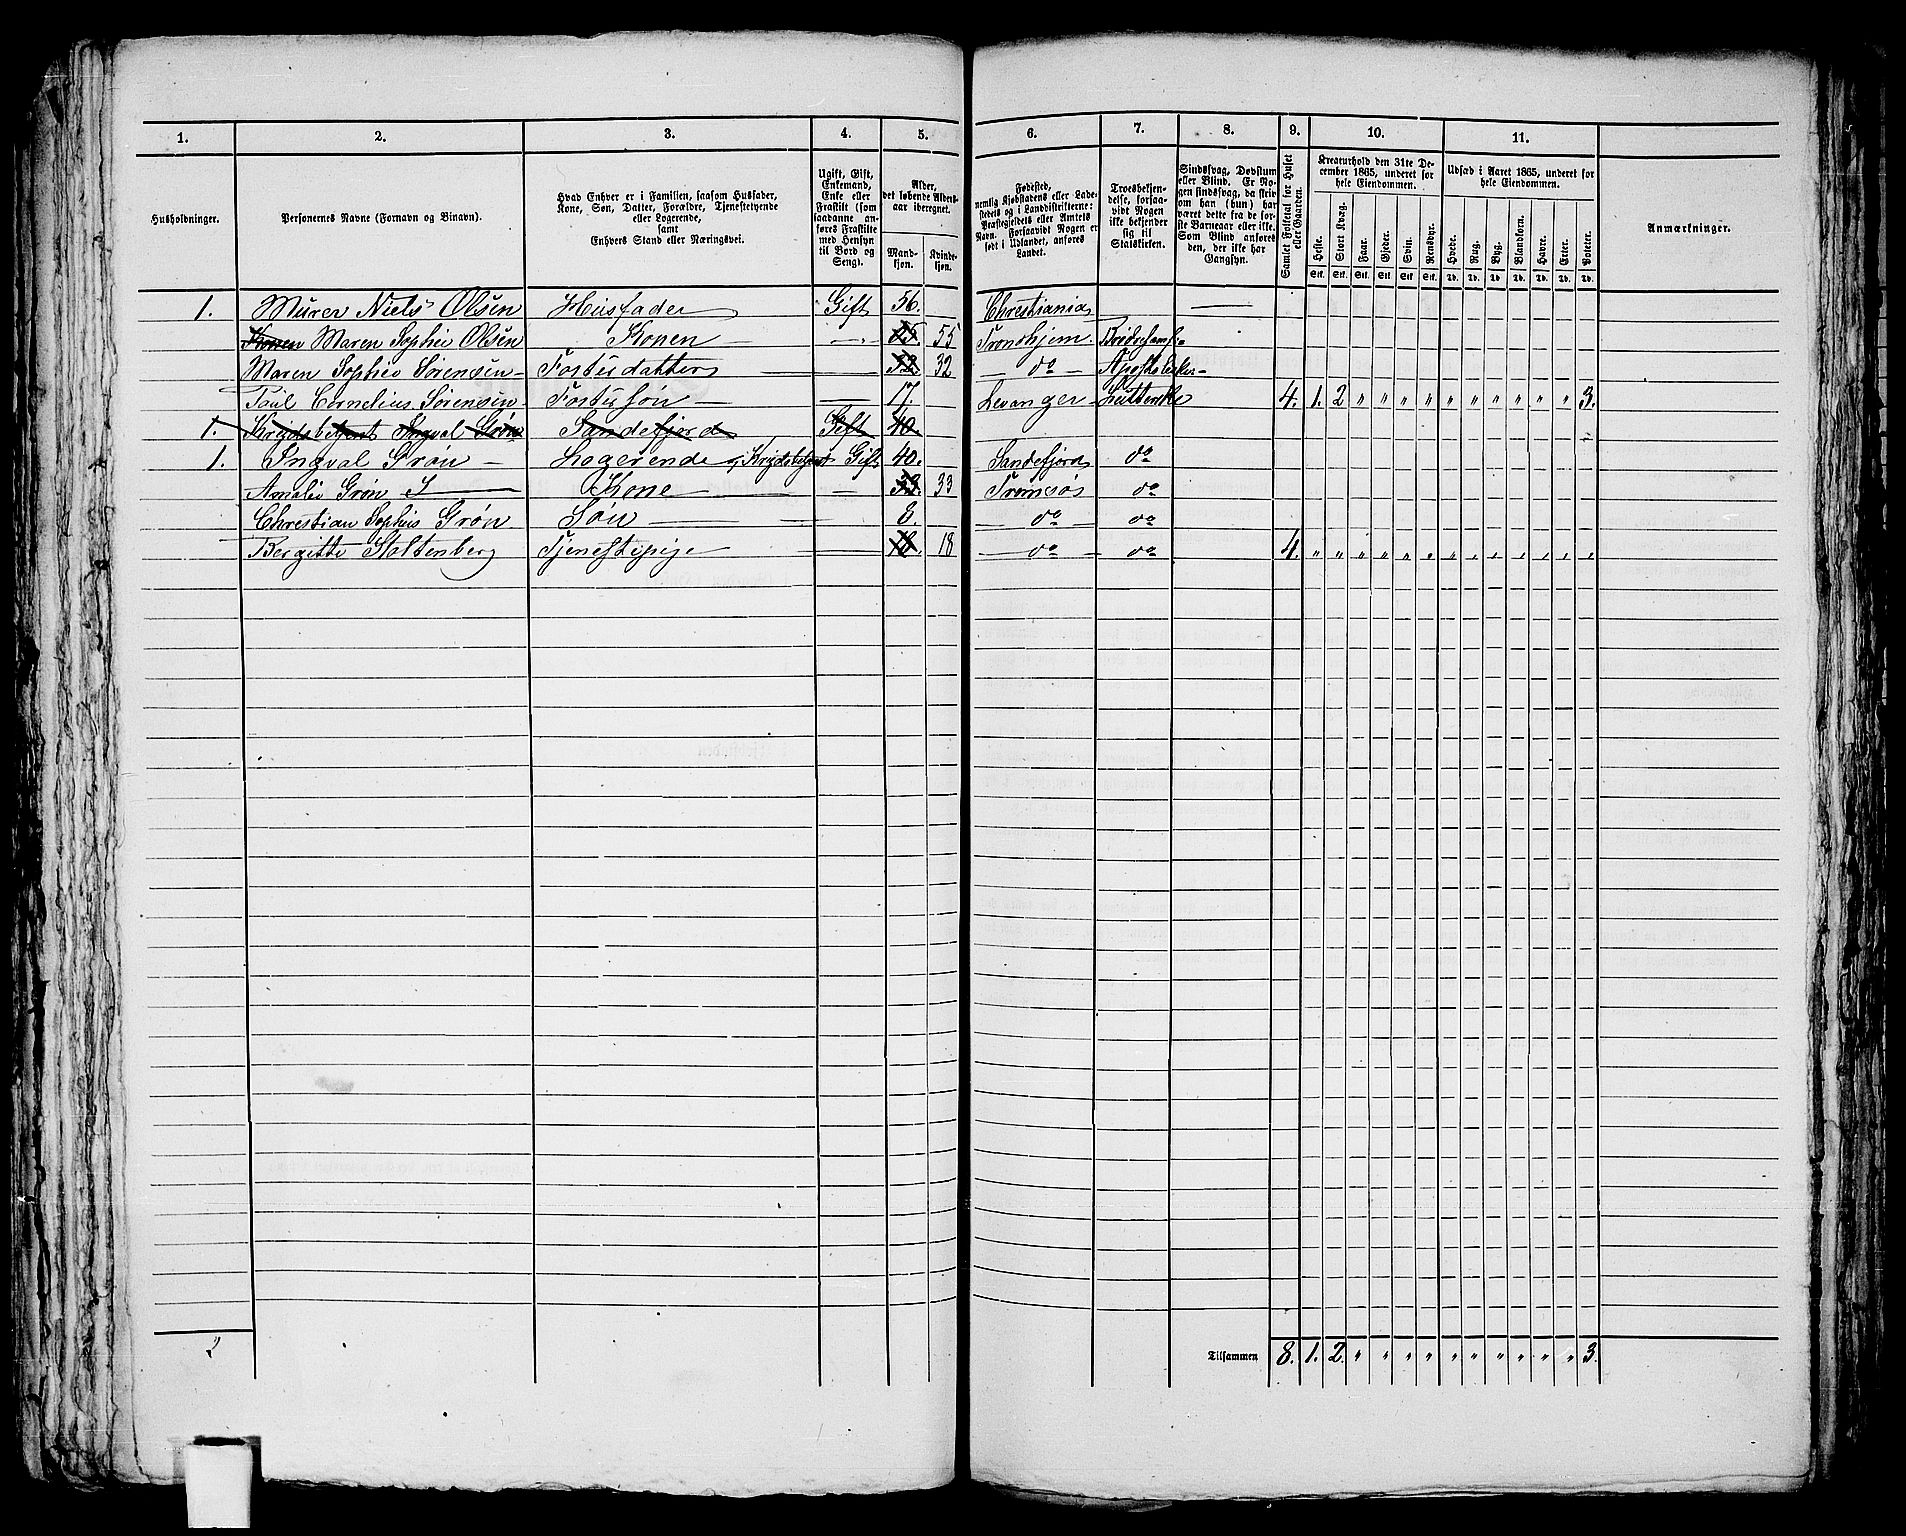 1. 2. 3. 4. 5. 6. 7. 8. 9. 10. 11.
Husholdninger.
Personernes Navne (Fornavn og Binavn).
Hvad Enhver er i Familien, saasom Husfader,
Kone, Søn, Datter, Forældre, Tjenestetyende
eller Logerende,
samt
Enhvers Stand eller Næringsvei.
Ugift, Gift,
Enkemand,
Enke eller
Fraskilt (som
saadanne an-
føres Fraskilte
med Hensyn
til Bord og
Seng).
Alder,
det løbende Alders-
aar iberegnet.
Mand-
kjøn.
Kvinde-
kjøn.
Fødested,
nemlig Kjøbstadens eller Lade-
stedets og i Landdistrikterne:
Præstegjeldets eller Amtets
Navn. Forsaavidt Nogen er
født i Udlandet, anføres
Landet.
Troesbekjen-
delse, forsaa-
vidt Nogen
ikke bekjender
sig til
Statskirken.
Sindssvag, Døvstum
eller Blind. Er No-
gen sindssvag, da skri-
ves om han (hun) har
været dette fra de før-
ste Barneaar eller ikke.
Som Blind anføres
den, der ikke har
Gangsyn.
Samlet Folketal for Huset
eller Gaarden.
Kreaturhold den 31te De-
cember 1865, underet for
hele Eiendommen.
Heste. Stort Kvæg. Faar. Gjeder. Svin. Rensdyr.
Stk. Stk. Stk. Stk. Stk. Stk.
Udsæd i Aaret 1865, underet for
hele Eiendommen.
Hvede. Rug. Byg. Blandkorn. Havre. Erter. Poteter.
Td. Td. Td. Td. Td. Td. Td.
Anmærkninger.
1. Murer Niels Olsen Husfader Gift 56. Christiania —
Konen Maren Sophie Olsen Konen — —„— 55 55 Tronhjem
Maren Sophie Sørensen — Fosterdatter — 32. 32 — do — Apostolisker —
Paul Cornelius Sørensen — Fostersøn — — 17. Levanger — 4. 1. 2 „ „ „ „ „ „ „ „ „ „ 3.
1. Krigdsbetjent Ingval Grøn Sandefjord Gift 40.
1. Ingval Grøn — Logerende, Krigdsbetjent Gift 40. Sandefjord do
Amalie Grøn — Kone — — 33. 33 Tromsø do
Christian Sophus Grøn Søn — — 8. — do — do
Bergitte Stoltenberg Tjenestepige — — 18 18 — do — do 4. „ „ „ „ „ „ „ „ „ „ „ „ „
2 Tilsammen 8. 1. 2. „ „ „ „ „ „ „ „ „ „ 3.